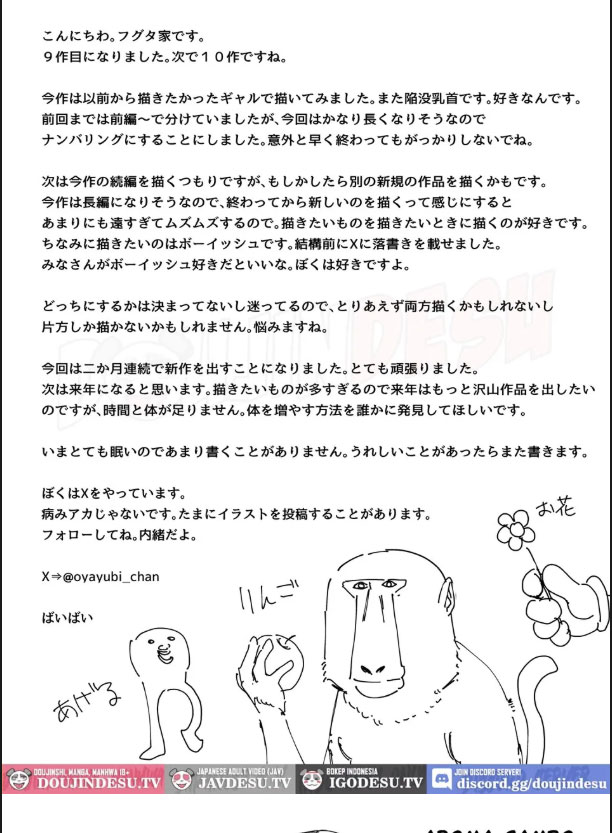 こんにちわ。フグタ家です。
９作目になりました。次で１０作ですね。
今作は以前から描きたかったギャルで描いてみました。また陥没乳首です。好きなんです。
前回までは前編～で分けていましたが、今回はかなり長くなりそうなので
ナンバリングにすることにしました。意外と早く終わってもがっかりしないでね。
次は今作の続編を描くつもりですが、もしかしたら別の新規の作品を描くかもです。
今作は長編になりそうなので、終わってから新しいのを描くって感じにすると
あまりにも遠すぎてムズムズするので。描きたいものを描きたいときに描くのが好きです。
ちなみに描きたいのはボーイッシュです。結構前にXに落書きを載せました。
みなさんがボーイッシュ好きだといいな。ぼくは好きですよ。
どっちにするかは決まってないし迷ってるので、とりあえず両方描くかもしれないし
片方しか描かないかもしれません。悩みますね。
今回は二か月連続で新作を出すことになりました。とても頑張りました。
次は来年になると思います。描きたいものが多すぎるので来年はもっと沢山作品を出したい
のですが、時間と体が足りません。体を増やす方法を誰かに発見してほしいです。
いまとても眠いのであまり書くことがありません。うれしいことがあったらまた書きます。
ぼくはXをやっています。
病みアカじゃないです。たまにイラストを投稿することがあります。
フォローしてね。内緒だよ。
X⇒@oyayubi_chan
ばいばい
お花
りんご
あげる
DOUJINDESU
DOUJINSHI, MANGA, MANHWA 18+
DOUJINDESU.TV
JAPANESE ADULT VIDEO (JAV)
JAVDESU.TV
BOKEP INDONESIA
IGODESU.TV
JOIN DISCORD SERVER!
discord.gg/doujindesu